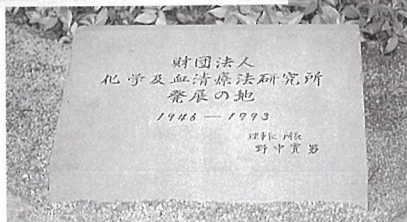 財団法人
化学及血清療法研究所
発展の地
1946—1993
理事長・所長
野中實男